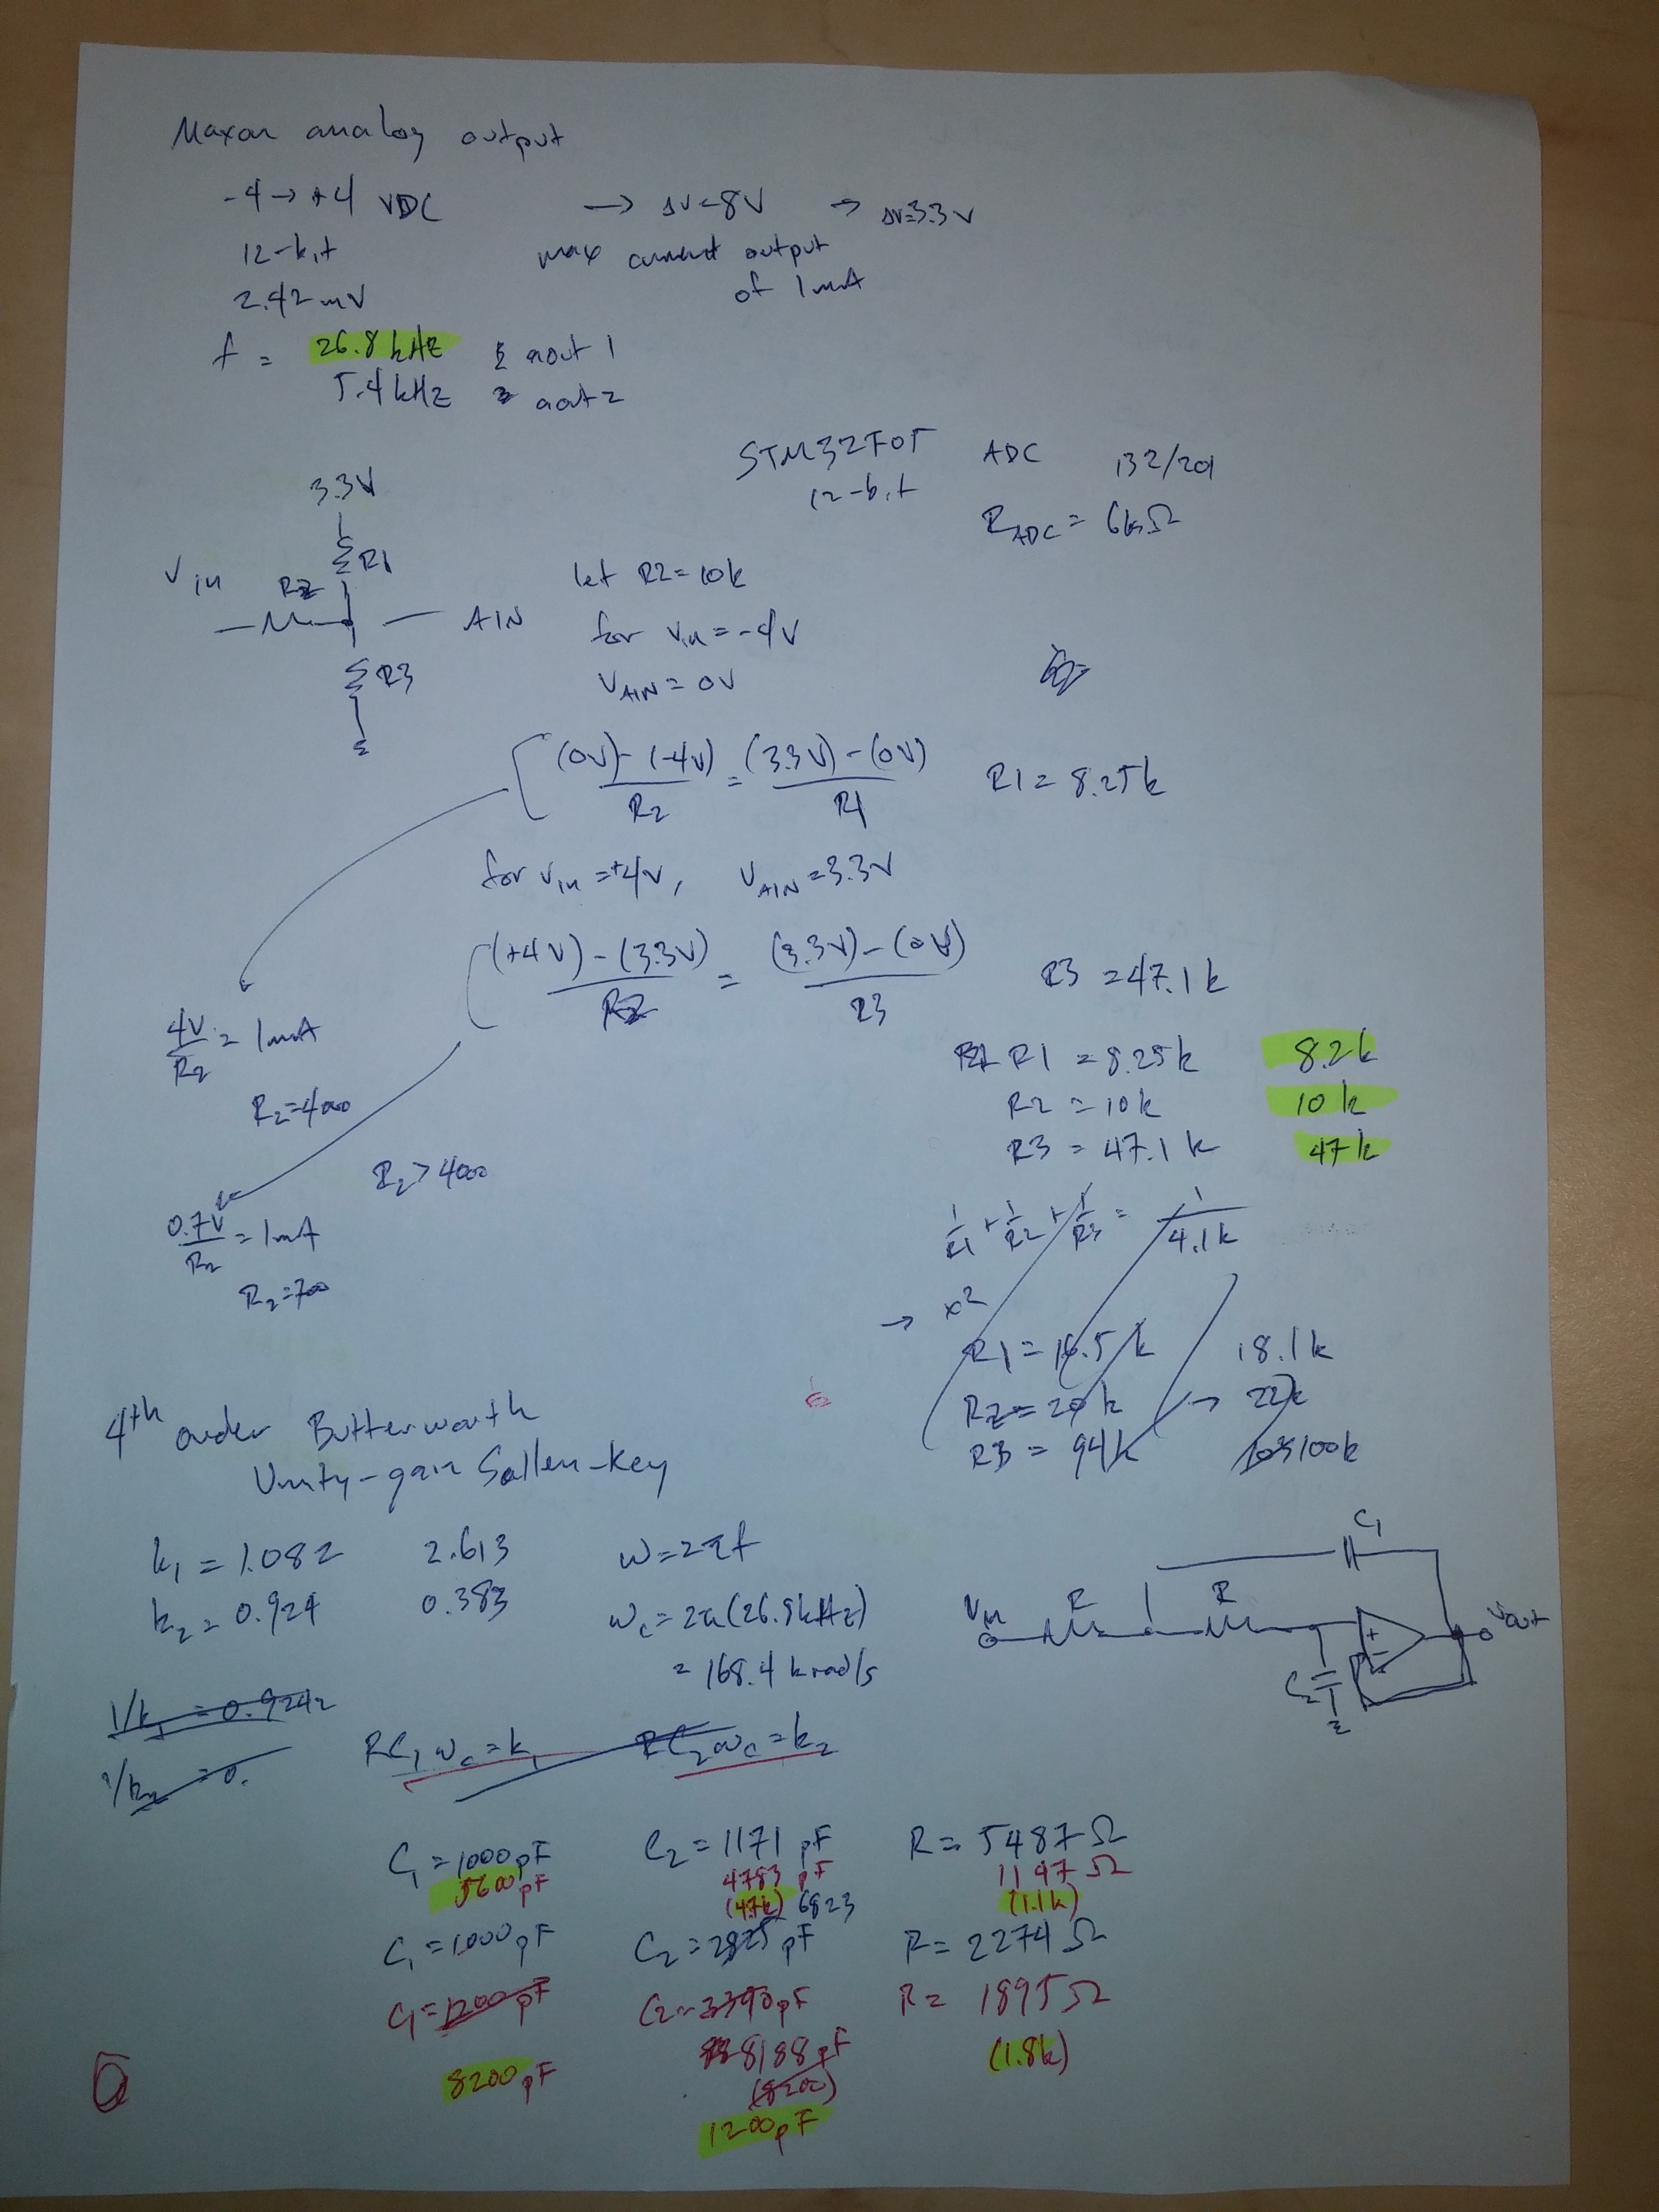 Maxon analog output
-4 → +4 VDC → ΔV=8V → ΔV=3.3V
12-bit max current output
2.42 mV of 1mA
f = 26.8 kHz aout 1
5.4 kHz aout 2
STM32F05 ADC 132/201
12-bit
R_ADC = 6kΩ
3.3V
R1
Vin R2
AIN
R3
let R2=10k
for Vin = -4V
V_AIN = 0V
(0V)-(-4V) / R2 = (3.3V)-(0V) / R1 R1 = 8.25k
for Vin = +4V, V_AIN = 3.3V
(+4V)-(3.3V) / R2 = (3.3V)-(0V) / R3 R3 = 47.1k
4V/R2 = 1mA
R2=4000
R2>4000
0.7V/R2 = 1mA
R2=700
R1 = 8.25k 8.2k
R2 = 10k 10k
R3 = 47.1k 47k
1/R1 + 1/R2 + 1/R3 = 1/4.1k
→ x2
R1 = 16.5k 18.1k
R2 = 20k → 22k
R3 = 94k 100k
4th order Butterworth
Unity-gain Sallen-Key
k1 = 1.082 2.613 ω=2πf
k2 = 0.924 0.383 ωc = 2π(26.8kHz)
= 168.4 krad/s
1/k1 = 0.9242
1/k2 = 0.
RC1ωc = k1 RC2ωc = k2
Vin R R C1 + - Vout
C2
C1 = 1000pF C2 = 1171 pF R = 5487Ω
5600 pF 4783 pF 1147Ω
(4.7k) 6823 (1.1k)
C1 = 1000pF C2 = 2825 pF R = 2274Ω
C1 = 1200pF C2 = 3390pF R = 1895Ω
8188pF (1.8k)
8200pF (8200)
1200pF